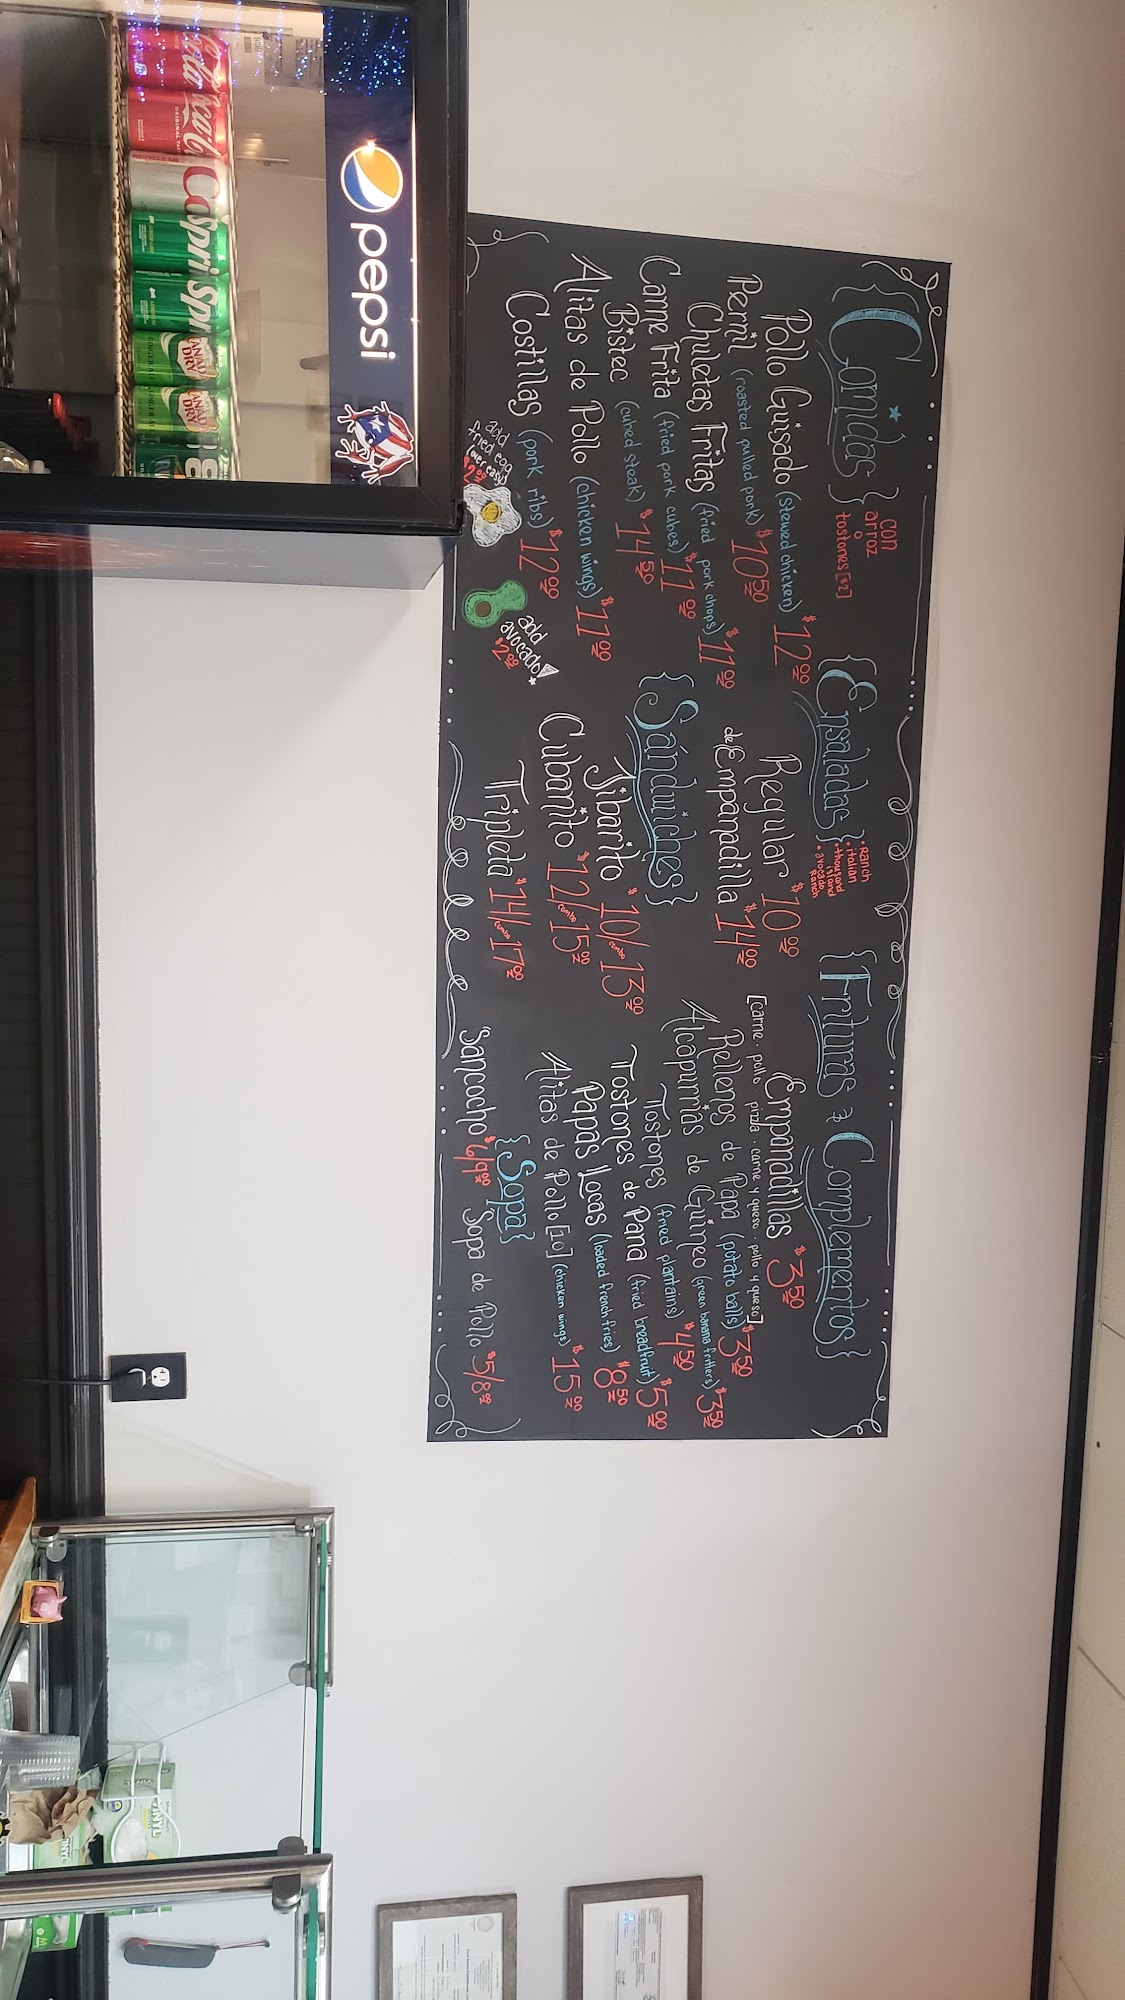 {Comidas}
con
arroz
o
tostones [$2]
Pollo Guisado (stewed chicken) $12.00
Pernil (roasted pulled pork) $10.50
Chuletas Fritas (fried pork chops) $11.00
Carne Frita (fried pork cubes) $11.00
Bistec (cubed steak) $14.50
Alitas de Pollo (chicken wings) $11.00
Costillas (pork ribs) $12.00
add
fried egg
(over easy)
add
avocado
$2.00
{Ensaladas}
• Ranch
• italian
• thousand
island
• avocado
Ranch
Regular $10.00
de Empanadilla $14.00
{Sándwiches}
Jibarito $10/combo 13.00
Cubanito $12/combo 15.00
Tripleta $14/combo 17.00
{Frituras y Complementos}
Empanadillas $3.50
[carne · pollo · pizza · carne y queso · pollo y queso]
Rellenos de Papa (potato balls) $3.50
Alcapurrias de Guineo (green banana fritters) $3.50
Tostones (fried plantains) $4.50
Tostones de Pana (fried breadfruit) $5.00
Papas Locas (loaded french fries) $8.50
Alitas de Pollo [10] (chicken wings) $15.00
{Sopa}
Sancocho $6/9.00 Sopa de Pollo $5/8.00
pepsi
Coca-Cola
ORIGINAL TASTE
Sprite
CANADA DRY
GINGER ALE
CANADA DRY
GINGER ALE
VINYL